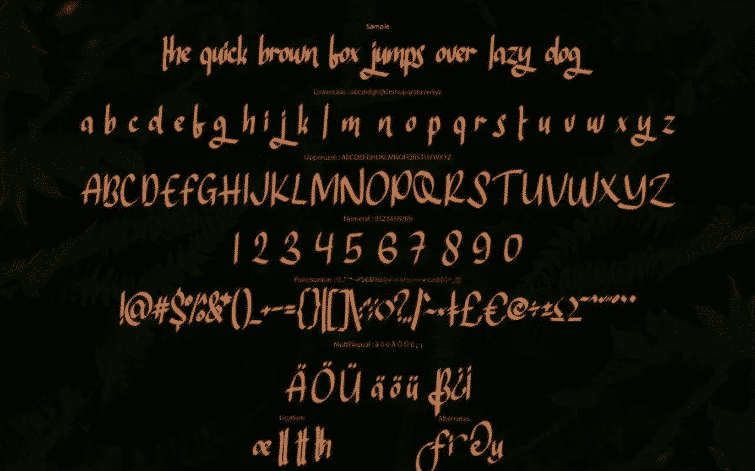 Sample
the quick brown fox jumps over lazy dog
Lowercase : abcdefghijklmnopqrstuvwxyz
a b c d e f g h i j k l m n o p q r s t u v w x y z
Uppercase : ABCDEFGHIJKLMNOPQRSTUVWXYZ
ABCDEFGHIJKLMNOPQRSTUVWXYZ
Numeral : 1234567890
1 2 3 4 5 6 7 8 9 0
Punctuation :
!@#$%&*()_+-={}|[]\
Multilingual : ä ö ü Ä Ö Ü ß ¿ ¡
ÄÖÜ äöü ß¿¡
Ligature Alternates
æ ll tt th f r d y